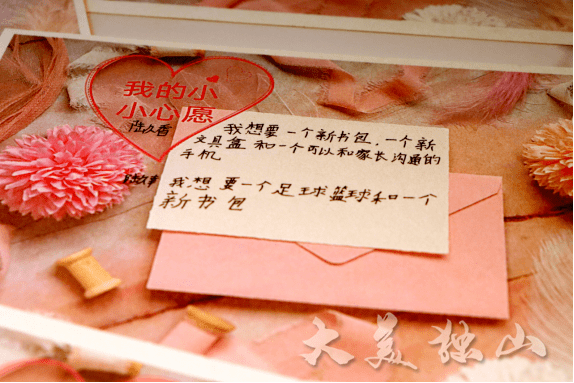 我的小
小心愿
我想要一个新书包,一个新
文具盒 和一个可以和家长沟通的
手机
我想要一个足球篮球和一个
新书包
大美独山